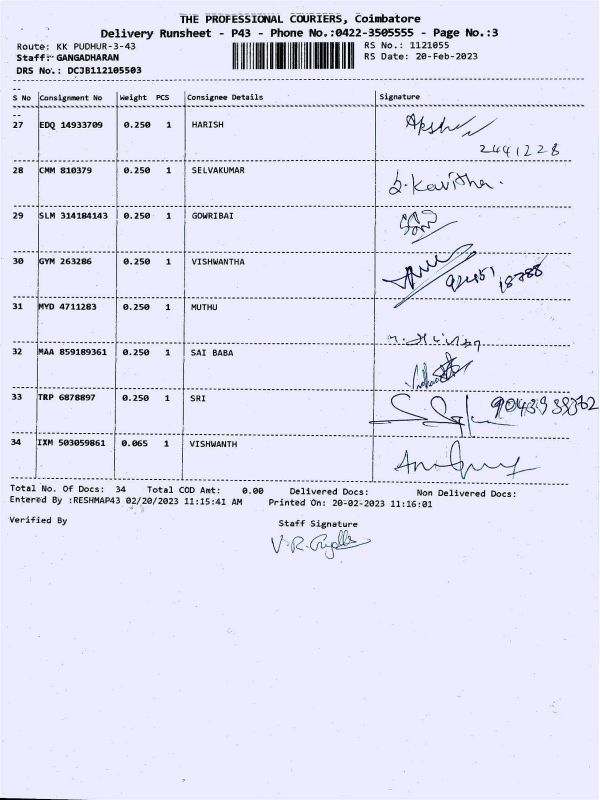 THE PROFESSIONAL COURIERS, Coimbatore
Delivery Runsheet - P43 - Phone No.:0422-3505555 - Page No.:3
Route: KK PUDHUR-3-43 RS No.: 1121055
Staff: GANGADHARAN RS Date: 20-Feb-2023
DRS No.: DCJB112105503
S No Consignment No Weight PCS Consignee Details Signature
27 EDQ 14933709 0.250 1 HARISH
2441228
28 CMM 810379 0.250 1 SELVAKUMAR
Kavitha.
29 SLM 314184143 0.250 1 GOWRIBAI
30 GYM 263286 0.250 1 VISHWANTHA
31 MYD 4711283 0.250 1 MUTHU
32 MAA 859189361 0.250 1 SAI BABA
33 TRP 6878897 0.250 1 SRI
34 IXM 503059861 0.065 1 VISHWANTH
Total No. Of Docs: 34 Total COD Amt: 0.00 Delivered Docs: Non Delivered Docs:
Entered By :RESHMAP43 02/20/2023 11:15:41 AM Printed On: 20-02-2023 11:16:01
Verified By Staff Signature